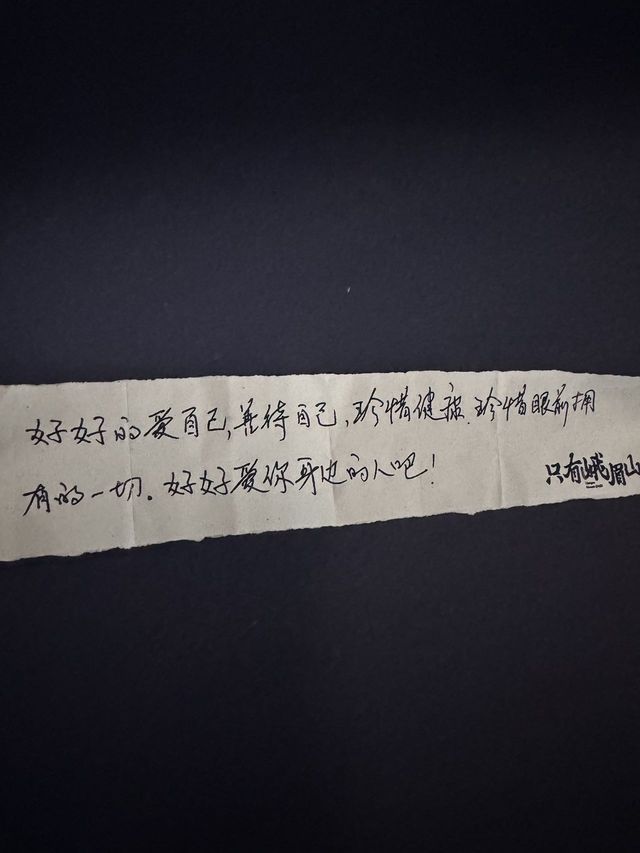 好好的爱自己，善待自己，珍惜健康，珍惜眼前拥
有的一切。好好爱你身边的人吧！
只有峨眉山